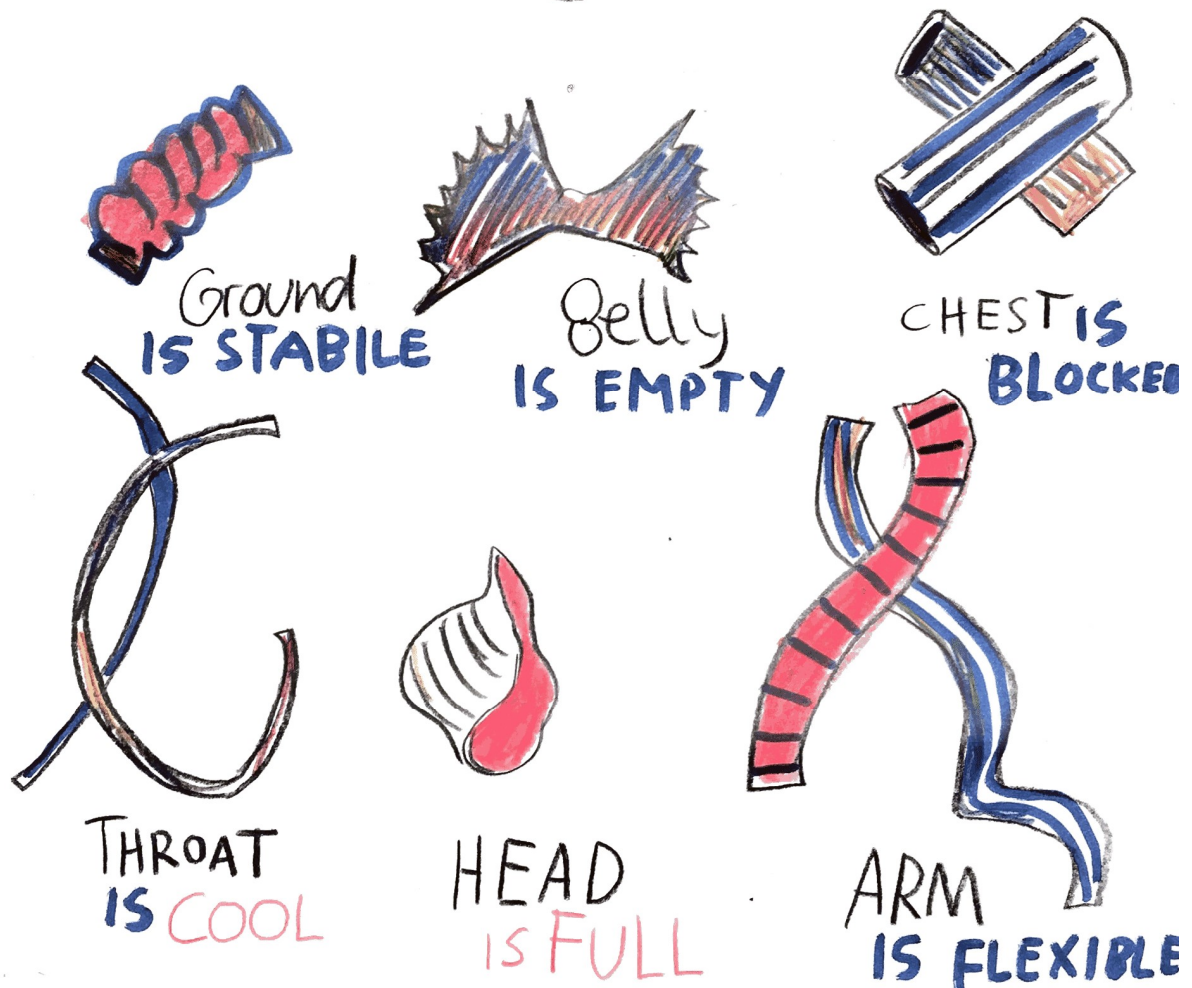 Ground
IS STABILE
Belly
IS EMPTY
CHEST IS
BLOCKED
THROAT
IS COOL
HEAD
IS FULL
ARM
IS FLEXIBLE